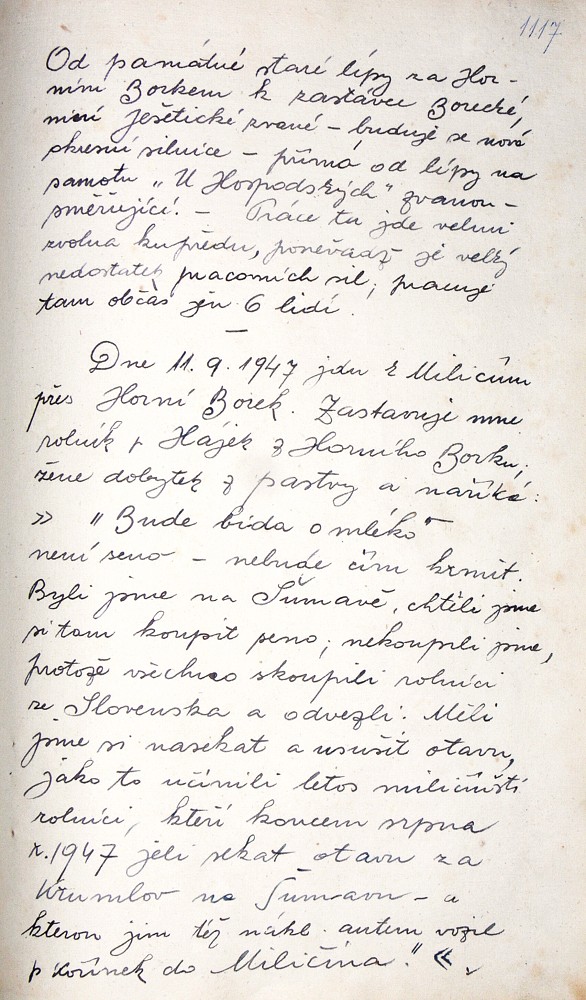 1117
Od památné staré lípy za Hor-
ním Borkem k zastávce Borecké,
nyní Ješetické zvané – buduje se nová
okresní silnice – přímo od lípy na
samotu „U Hospodských" zvanou –
směřující. – Práce tu jde velmi
zvolna kupředu, poněvadž je velký
nedostatek pracovních sil; pracuje
tam občas jen 6 lidí.
—
Dne 11. 9. 1947 jdu z Miličína
přes Horní Borek. Zastavuje mne
rolník p Hájek z Horního Borku;
žene dobytek z pastvy a naříká:
» „Bude bída o mléko"
není seno – nebude čím krmit.
Byli jsme na Šumavě, chtěli jsme
si tam koupit seno; nekoupili jsme,
protože všechno skoupili rolníci
ze Slovenska a odvezli. Měli
jsme si nasekat a usušit otavu,
jako to učinili letos miličínští
rolníci, kteří koncem srpna
r. 1947 jeli sekat otavu za
Krumlov na Šumavu – a
kterou jim též nákl. autem vozil
p Kořínek do Miličína." «